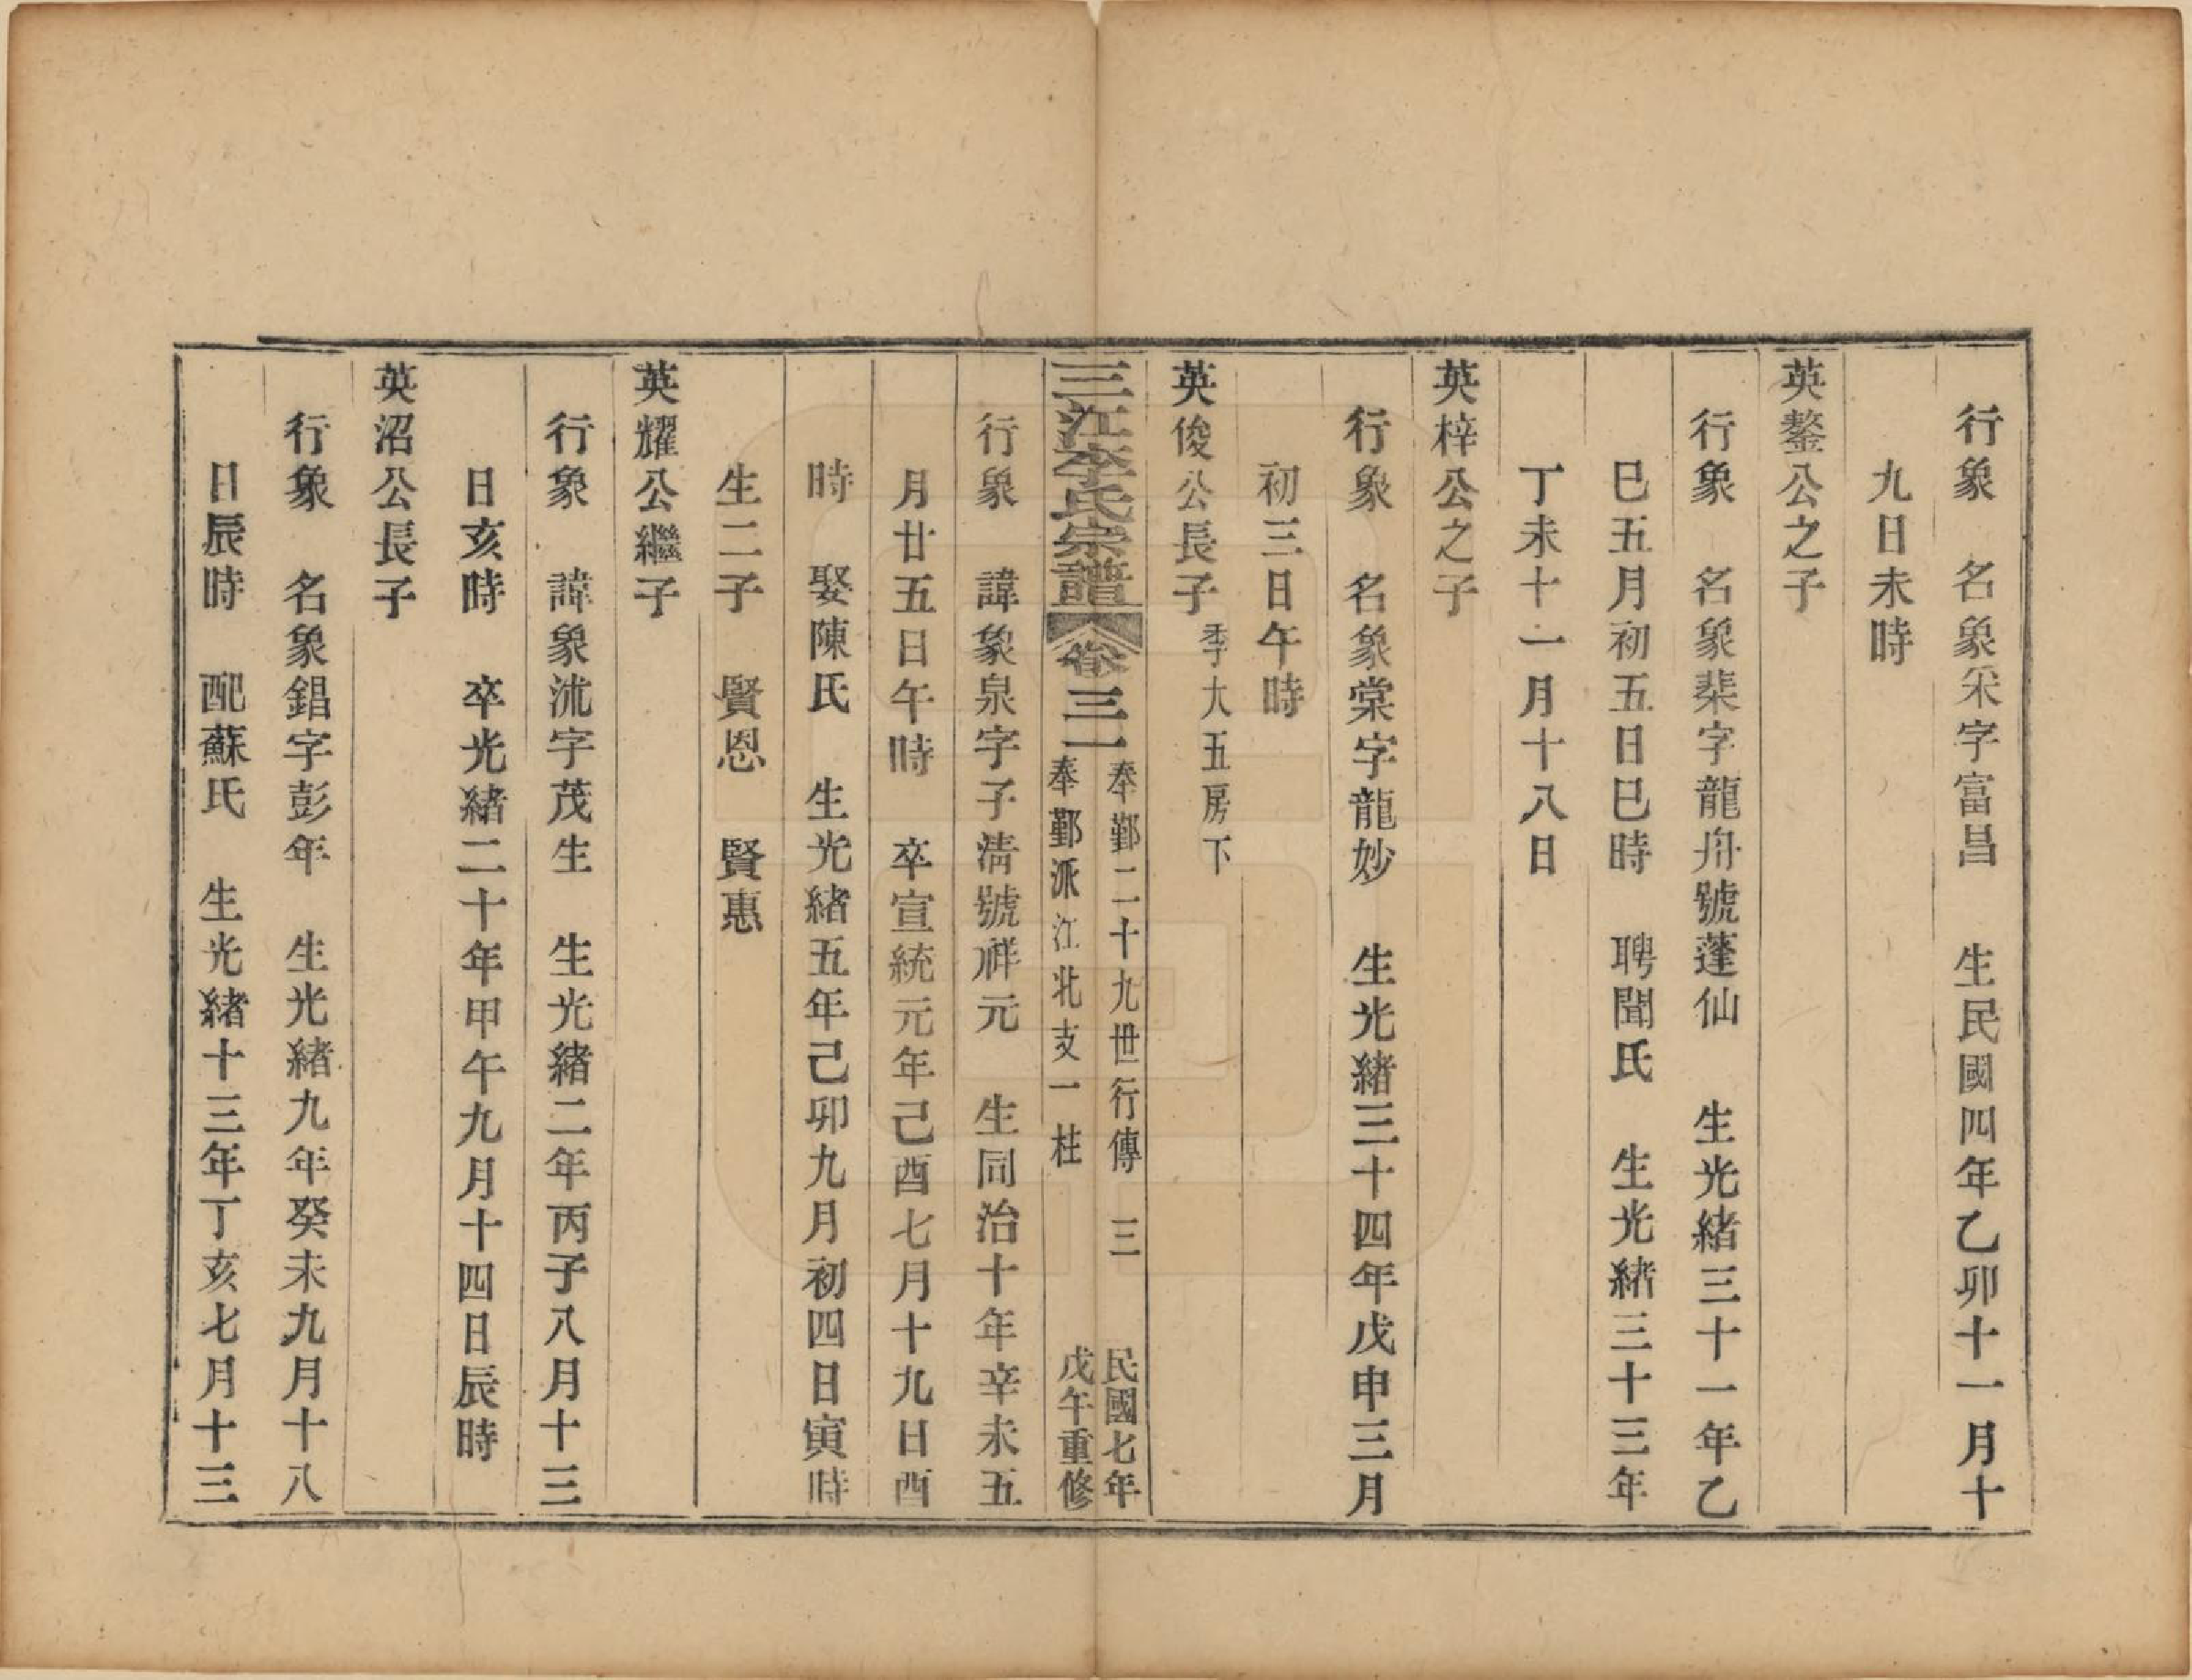 行象　名象釆字富昌　生民國四年乙卯十一月十
九日未時
英鏊公之子
行象　名象棐字龍舟號蓬仙　生光緒三十一年乙
巳五月初五日巳時　聘聞氏　生光緒三十三年
丁未十一月十八日
英梓公之子
行象　名象棠字龍妙　生光緒三十四年戊申三月
初三日午時
英俊公長子季大五房下
三江李氏宗譜　卷三二
奉鄞二十九世行傳　三　民國七年
奉鄞派江北支一柱　戊午重修
行象　諱象泉字子淸號祥元　生同治十年辛未五
月廿五日午時　卒宣統元年己酉七月十九日酉
時　娶陳氏　生光緒五年己卯九月初四日寅時
生二子　賢恩　賢惠
英耀公繼子
行象　諱象沭字茂生　生光緒二年丙子八月十三
日亥時　卒光緒二十年甲午九月十四日辰時
英沼公長子
行象　名象錩字彭年　生光緒九年癸未九月十八
日辰時　配蘇氏　生光緒十三年丁亥七月十三